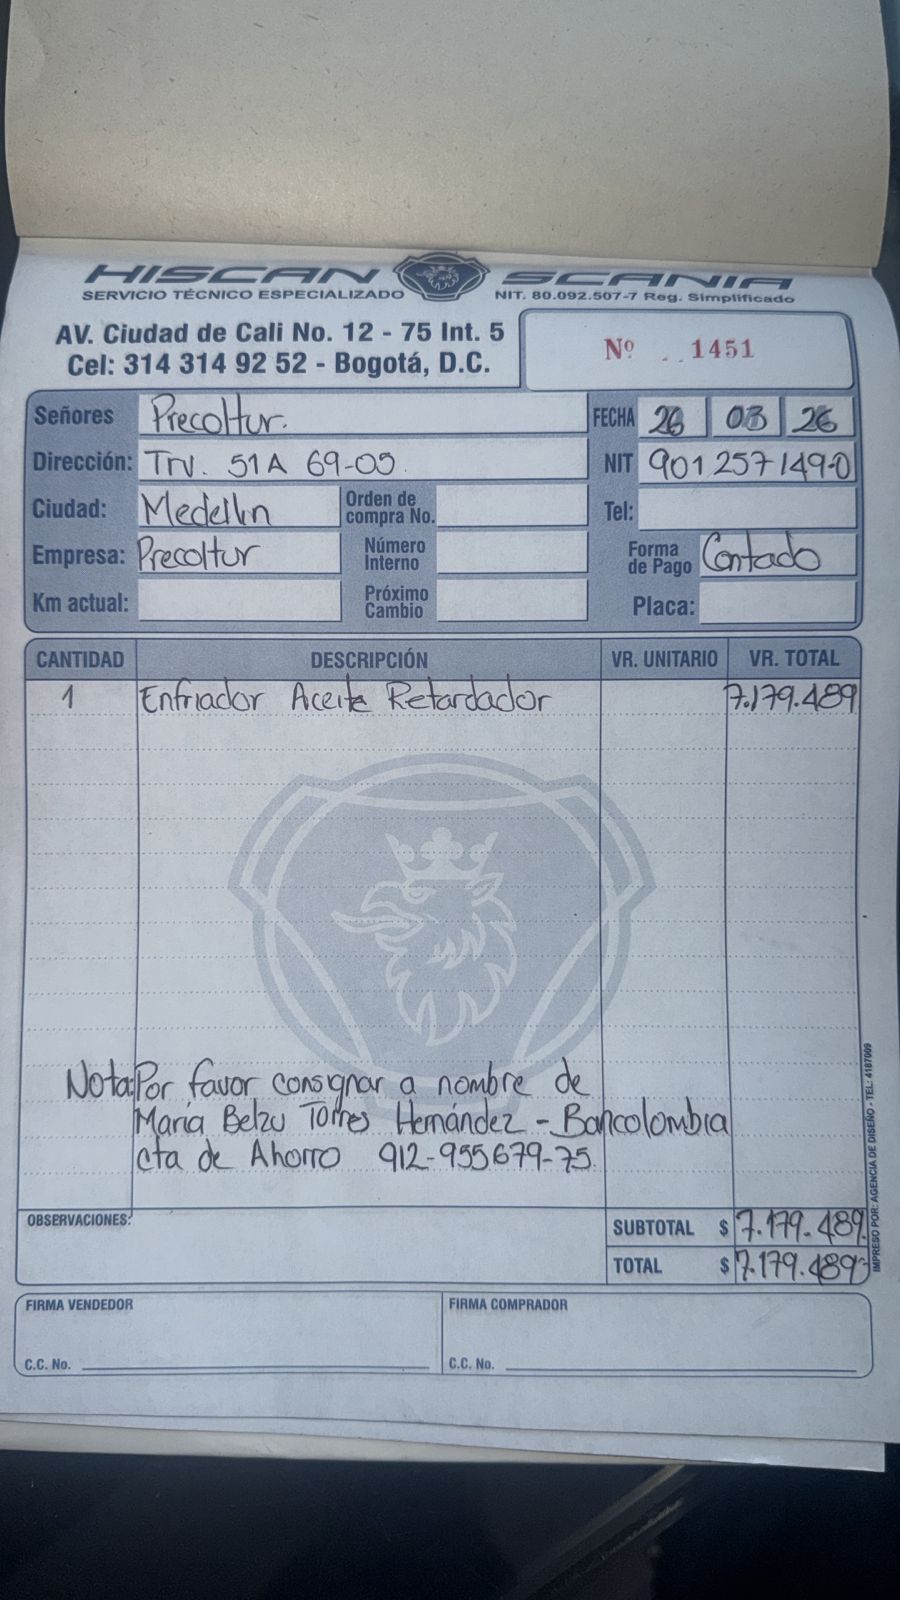 HISCAN SCANIA
SERVICIO TÉCNICO ESPECIALIZADO
NIT. 80.092.507-7 Reg. Simplificado
AV. Ciudad de Cali No. 12 - 75 Int. 5
Cel: 314 314 92 52 - Bogotá, D.C.
Nº 1451
Señores Precoltur.
FECHA 26 03 26
Dirección: Trv. 51A 69-05
NIT 901257149-0
Ciudad: Medellin
Orden de compra No.
Tel:
Empresa: Precoltur
Número Interno
Forma de Pago Contado
Km actual:
Próximo Cambio
Placa:
CANTIDAD DESCRIPCIÓN VR. UNITARIO VR. TOTAL
1 Enfriador Aceite Retardador 7.179.489
Nota: Por favor consignar a nombre de
Maria Belzu Torres Hernández - Bancolombia
cta de Ahorro 912-955679-75
OBSERVACIONES:
SUBTOTAL $ 7.179.489
TOTAL $ 7.179.489
FIRMA VENDEDOR
C.C. No.
FIRMA COMPRADOR
C.C. No.
IMPRESO POR: AGENCIA DE DISEÑO - TEL: 4187009